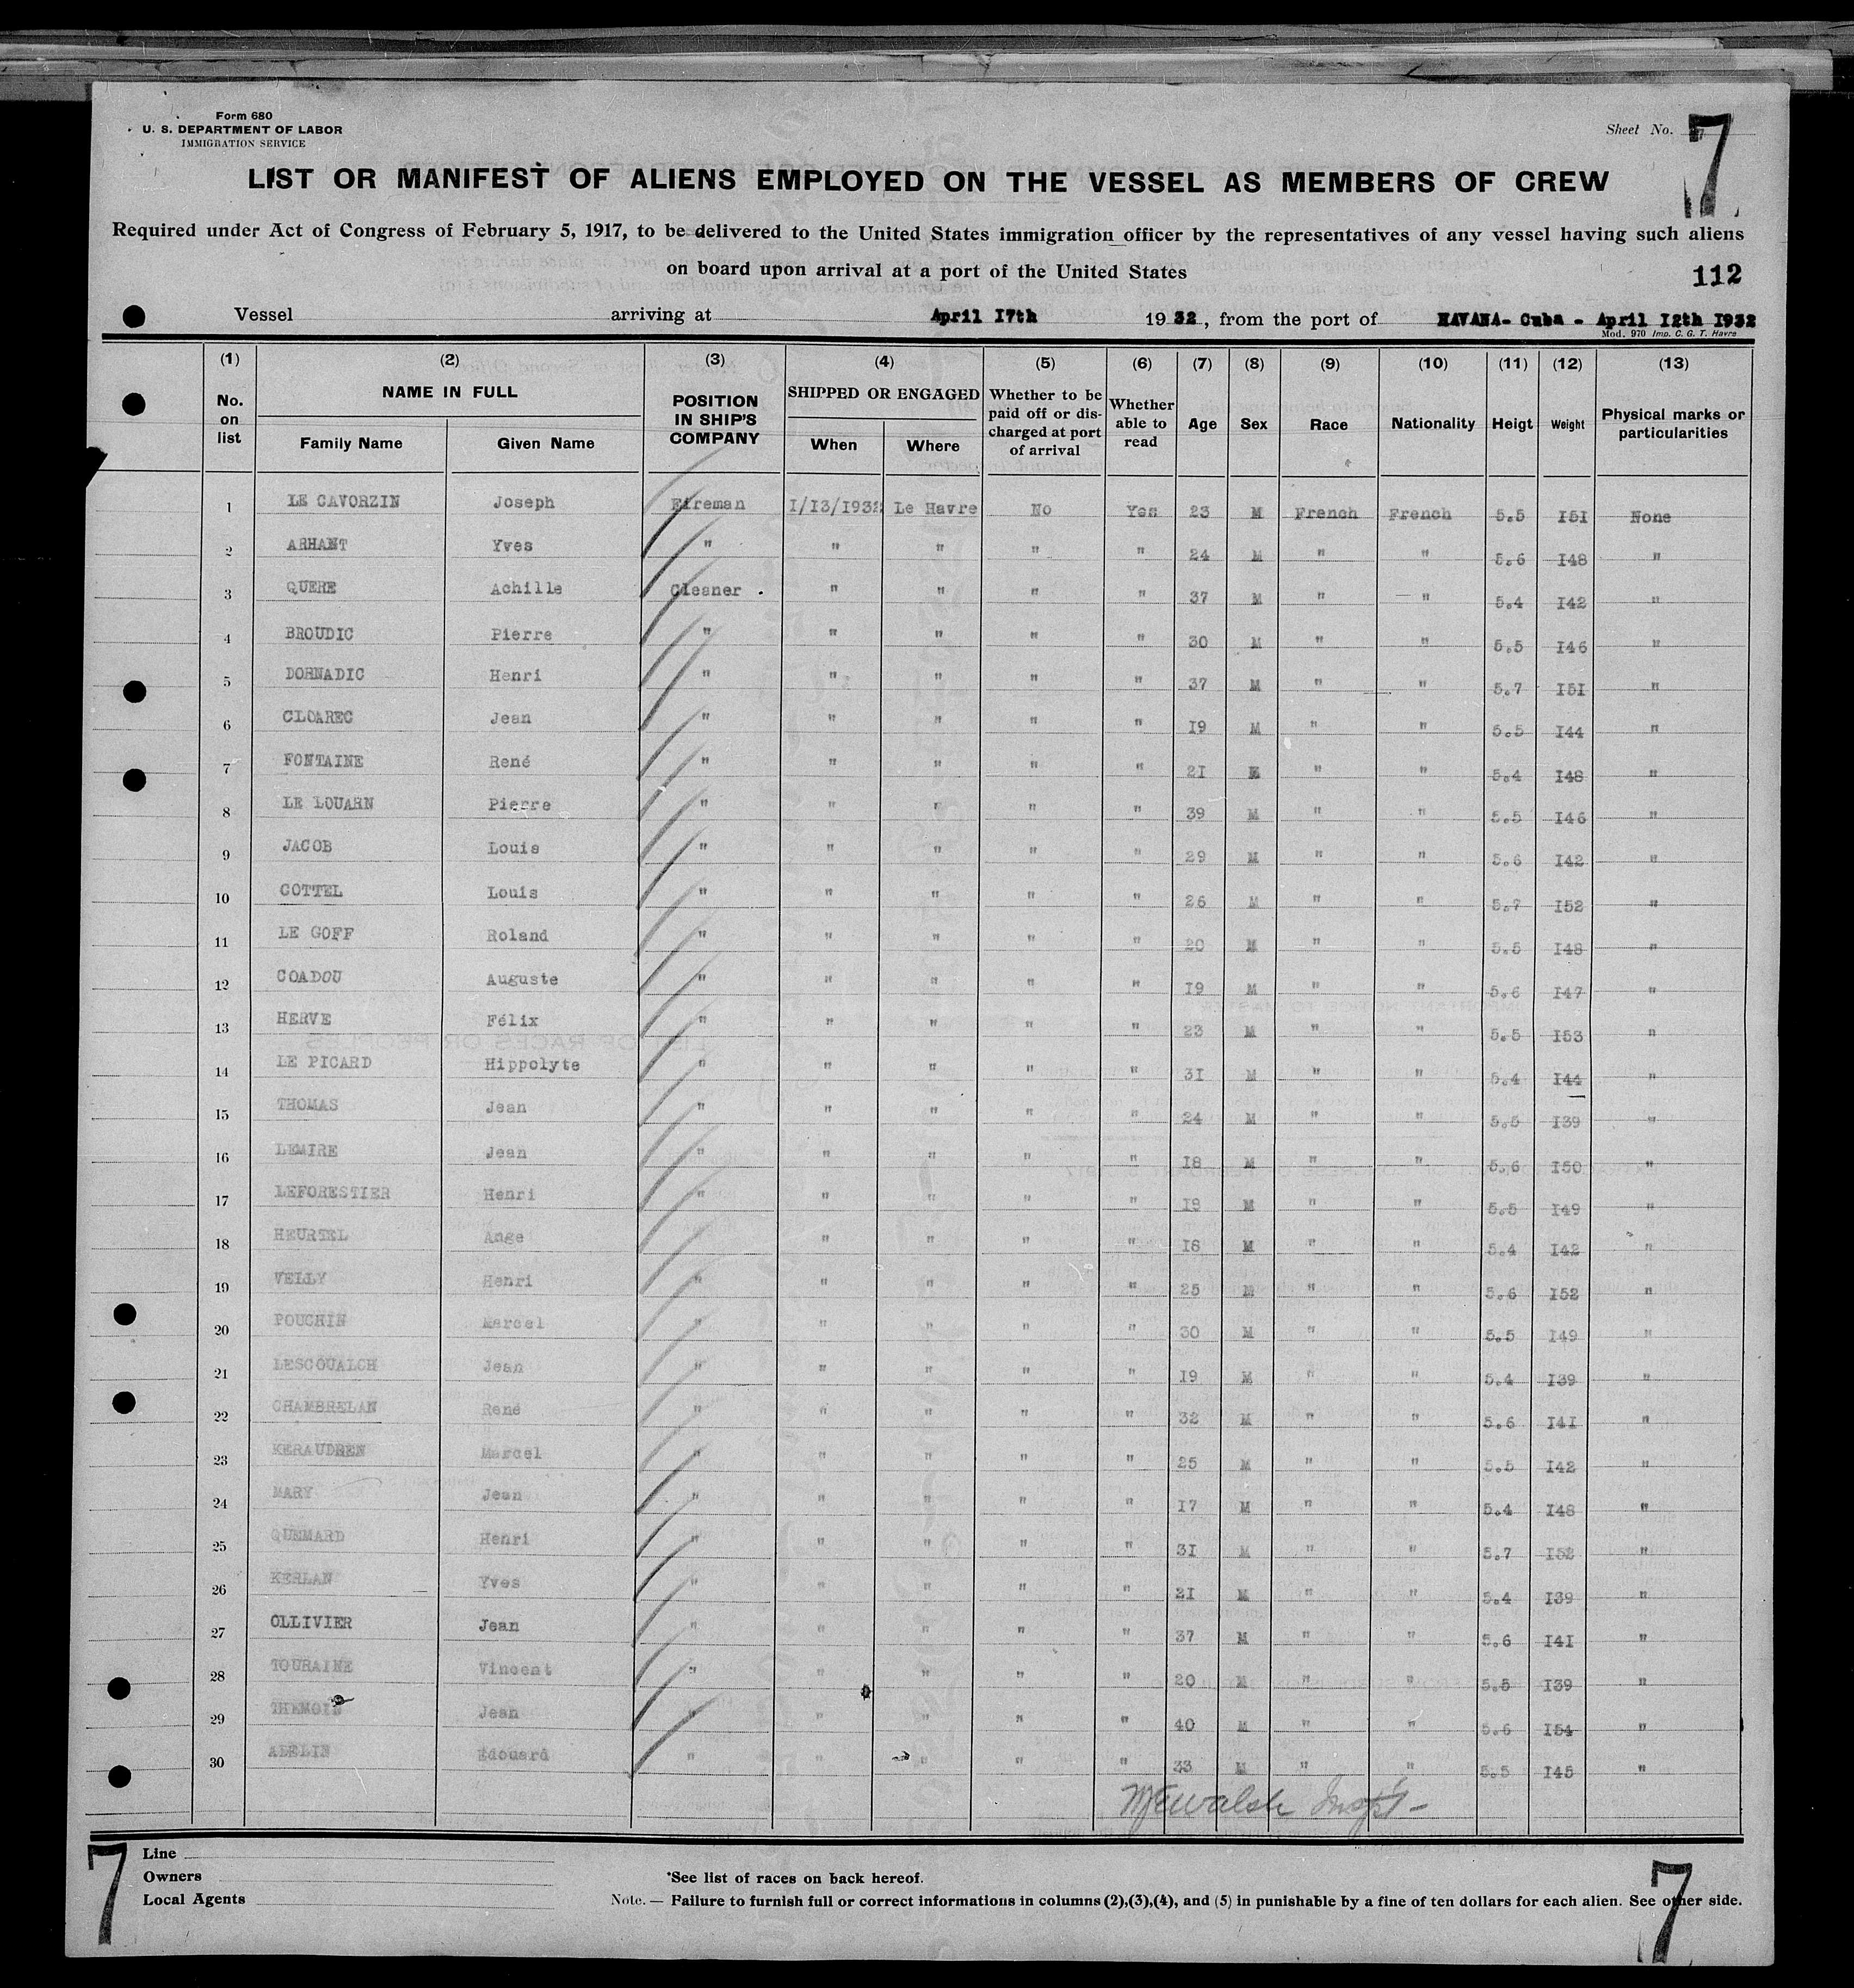 Form 680
U. S. DEPARTMENT OF LABOR
IMMIGRATION SERVICE
Sheet No. 7
LIST OR MANIFEST OF ALIENS EMPLOYED ON THE VESSEL AS MEMBERS OF CREW
Required under Act of Congress of February 5, 1917, to be delivered to the United States immigration officer by the representatives of any vessel having such aliens
on board upon arrival at a port of the United States
112
Vessel arriving at April I7th 19 32, from the port of HAVANA- Cuba - April I2th I932
Mod. 970 Imp. C. G. T. Havre
(1) (2) (3) (4) (5) (6) (7) (8) (9) (10) (11) (12) (13)
No. on list NAME IN FULL Family Name Given Name POSITION IN SHIP'S COMPANY SHIPPED OR ENGAGED When Where Whether to be paid off or discharged at port of arrival Whether able to read Age Sex Race Nationality Heigt Weight Physical marks or particularities
1 LE CAVORZIN Joseph Fireman I/I3/I932 Le Havre No Yes 23 M French French 5.5 I5I None
2 ARHANT Yves " " " " " 24 M " " 5.6 I48 "
3 QUERE Achille Cleaner . " " " " 37 M " " 5.4 I42 "
4 BROUDIC Pierre " " " " " 30 M " " 5.5 I46 "
5 DORNADIC Henri " " " " " 37 M " " 5.7 I5I "
6 CLOAREC Jean " " " " " I9 M " " 5.5 I44 "
7 FONTAINE René " " " " " 2I M " " 5.4 I48 "
8 LE LOUARN Pierre " " " " " 39 M " " 5.5 I46 "
9 JACOB Louis " " " " " 29 M " " 5.6 I42 "
10 COTTEL Louis " " " " " 26 M " " 5.7 I52 "
11 LE GOFF Roland " " " " " 20 M " " 5.5 I48 "
12 COADOU Auguste " " " " " I9 M " " 5.6 I47 "
13 HERVE Félix " " " " " 23 M " " 5.5 I53 "
14 LE PICARD Hippolyte " " " " " 3I M " " 5.4 I44 "
15 THOMAS Jean " " " " " 24 M " " 5.5 I39 "
16 LEMIRE Jean " " " " " I8 M " " 5.6 I50 "
17 LEFORESTIER Henri " " " " " I9 M " " 5.5 I49 "
18 HEURTEL Ange " " " " I8 M " " 5.4 I42 "
19 VELLY Henri " " " " " 25 M " " 5.6 I52 "
20 POUCHIN Marcel " " " " " 30 M " " 5.5 I49 "
21 LESCOUALCH Jean " " " " " I9 M " " 5.4 I39 "
22 CHAMBRELAN René " " " " " 32 M " " 5.6 I4I "
23 KERAUDREN Marcel " " " " " 25 M " " 5.5 I42 "
24 MARY Jean " " " " " I7 M " " 5.4 I48 "
25 QUEMARD Henri " " " " " 3I M " " 5.7 I52 "
26 KERLAN Yves " " " " " 2I M " " 5.4 I39 "
27 OLLIVIER Jean " " " " " 37 M " " 5.6 I4I "
28 TOURAINE Vincent " " " " " 20 M " " 5.5 I39 "
29 Jean " " " " " 40 M " " 5.6 I54 "
30 ADELIN Edouard " " " " " 33 M " " 5.5 I45 "
Walsh Insp't -
7 Line
Owners *See list of races on back hereof.
Local Agents Note. — Failure to furnish full or correct informations in columns (2),(3),(4), and (5) in punishable by a fine of ten dollars for each alien. See other side.
7